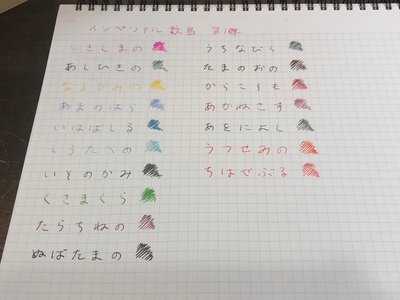 インペリアル 敷島 第1弾
しきしまの
あしひきの
なるかみの
あまのはら
いはばしる
しろたへの
いそのかみ
くさまくら
たらちねの
ぬばたまの
うちなびく
たまのおの
からころも
あかねさす
あをによし
うつせみの
ちはやぶる